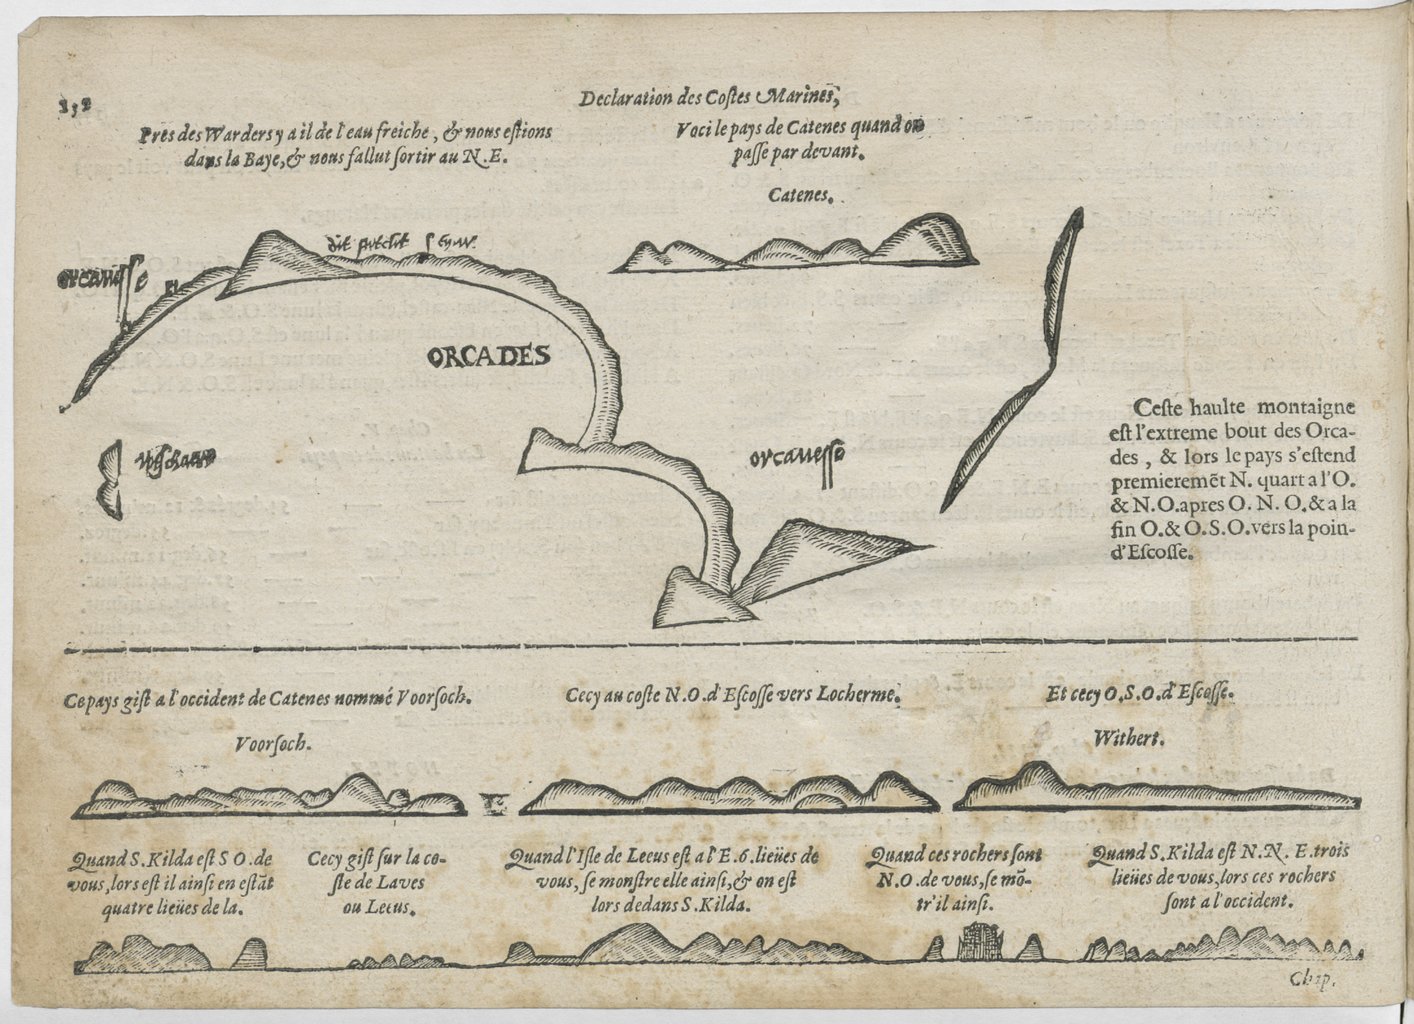 132
Declaration des Costes Marines,
Pres des Warders y a il de l'eau freiche, & nous estions
dans la Baye, & nous fallut sortir au N.E.
Voci le pays de Catenes quand on
passe par devant.
Catenes.
ORCADES
orcanesse
Ceste haulte montaigne
est l'extreme bout des Orca-
des, & lors le pays s'estend
premieremẽt N. quart a l'O.
& N.O. apres O. N. O. & a la
fin O. & O.S.O. vers la poin-
d'Escosse.
Ce pays gist a l'occident de Catenes nommé Voorsoch.
Voorsoch.
Cecy au coste N.O. d'Escosse vers Locherme.
Et cecy O.S.O. d'Escosse.
Withert.
Quand S. Kilda est S O. de
vous, lors est il ainsi en estãt
quatre lieües de la.
Cecy gist sur la co-
ste de Laves
ou Leeus.
Quand l'Isle de Leeus est a l'E. 6. lieües de
vous, se monstre elle ainsi, & on est
lors dedans S. Kilda.
Quand ces rochers sont
N.O. de vous, se mõ-
tr'il ainsi.
Quand S. Kilda est N.N. E. trois
lieües de vous, lors ces rochers
sont a l'occident.
Chap.